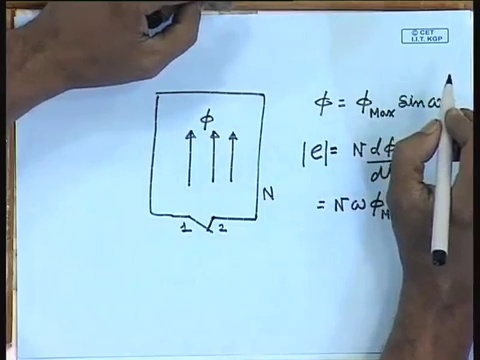 © CET
I.I.T. KGP
ϕ
N
1 2
ϕ = ϕMax sin ω
|e| = N dϕ/d
= N ω ϕM